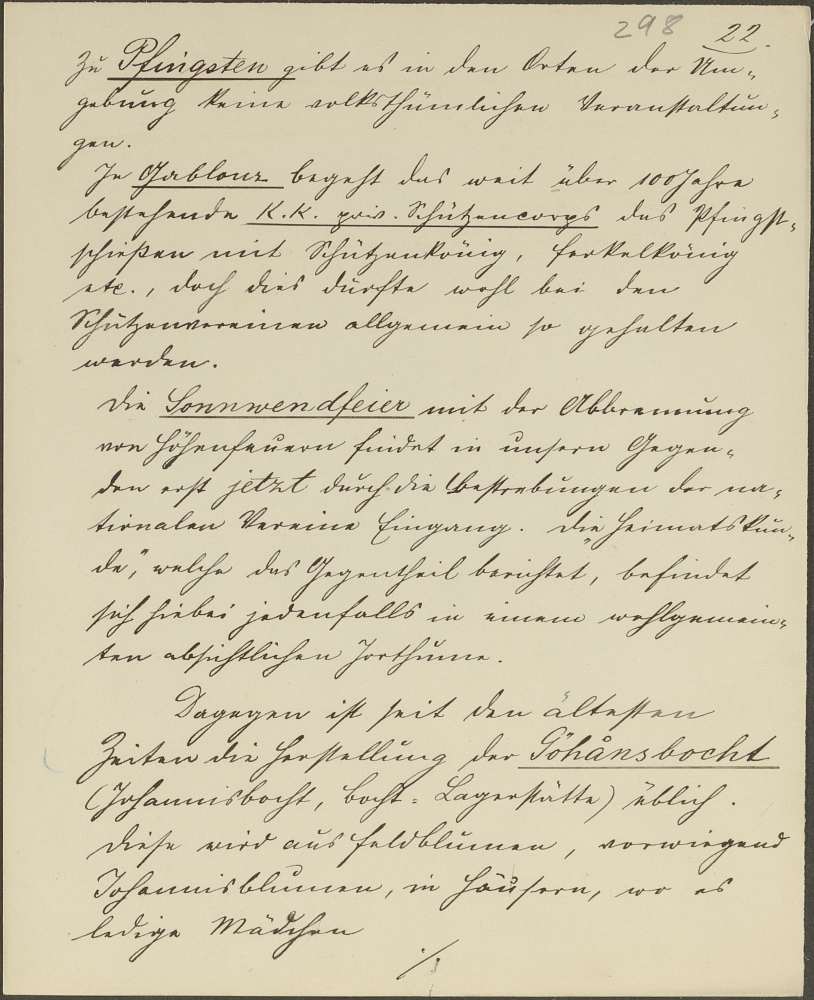 298 22.
Zu Pfingsten gibt es in den Orten der Um-
gebung keine volksthümlichen Veranstaltun-
gen.
In Gablonz begeht das weit über 100 Jahre
bestehende K.K. priv. Schützencorps das Pfingst-
schießen mit Schützenkönig, Ferkelkönig
etc., doch dies dürfte wohl bei den
Schützenvereinen allgemein so gehalten
werden.
Die Sonnwendfeier mit der Abbrennung
von Höhenfeuern findet in unsern Gegen-
den erst jetzt durch die Bestrebungen der na-
tionalen Vereine Eingang. Die „Heimatskun-
de“, welche das Gegentheil berichtet, befindet
sich hiebei jedenfalls in einem wohlgemein-
ten absichtlichen Irrthume.
Dagegen ist seit den ältesten
Zeiten die Herstellung der Gōhånsbocht
(Johannisbocht, bocht = Lagerstätte) üblich.
Diese wird aus Feldblumen, vorwiegend
Johannisblumen, in Häusern, wo es
ledige Mädchen
./.